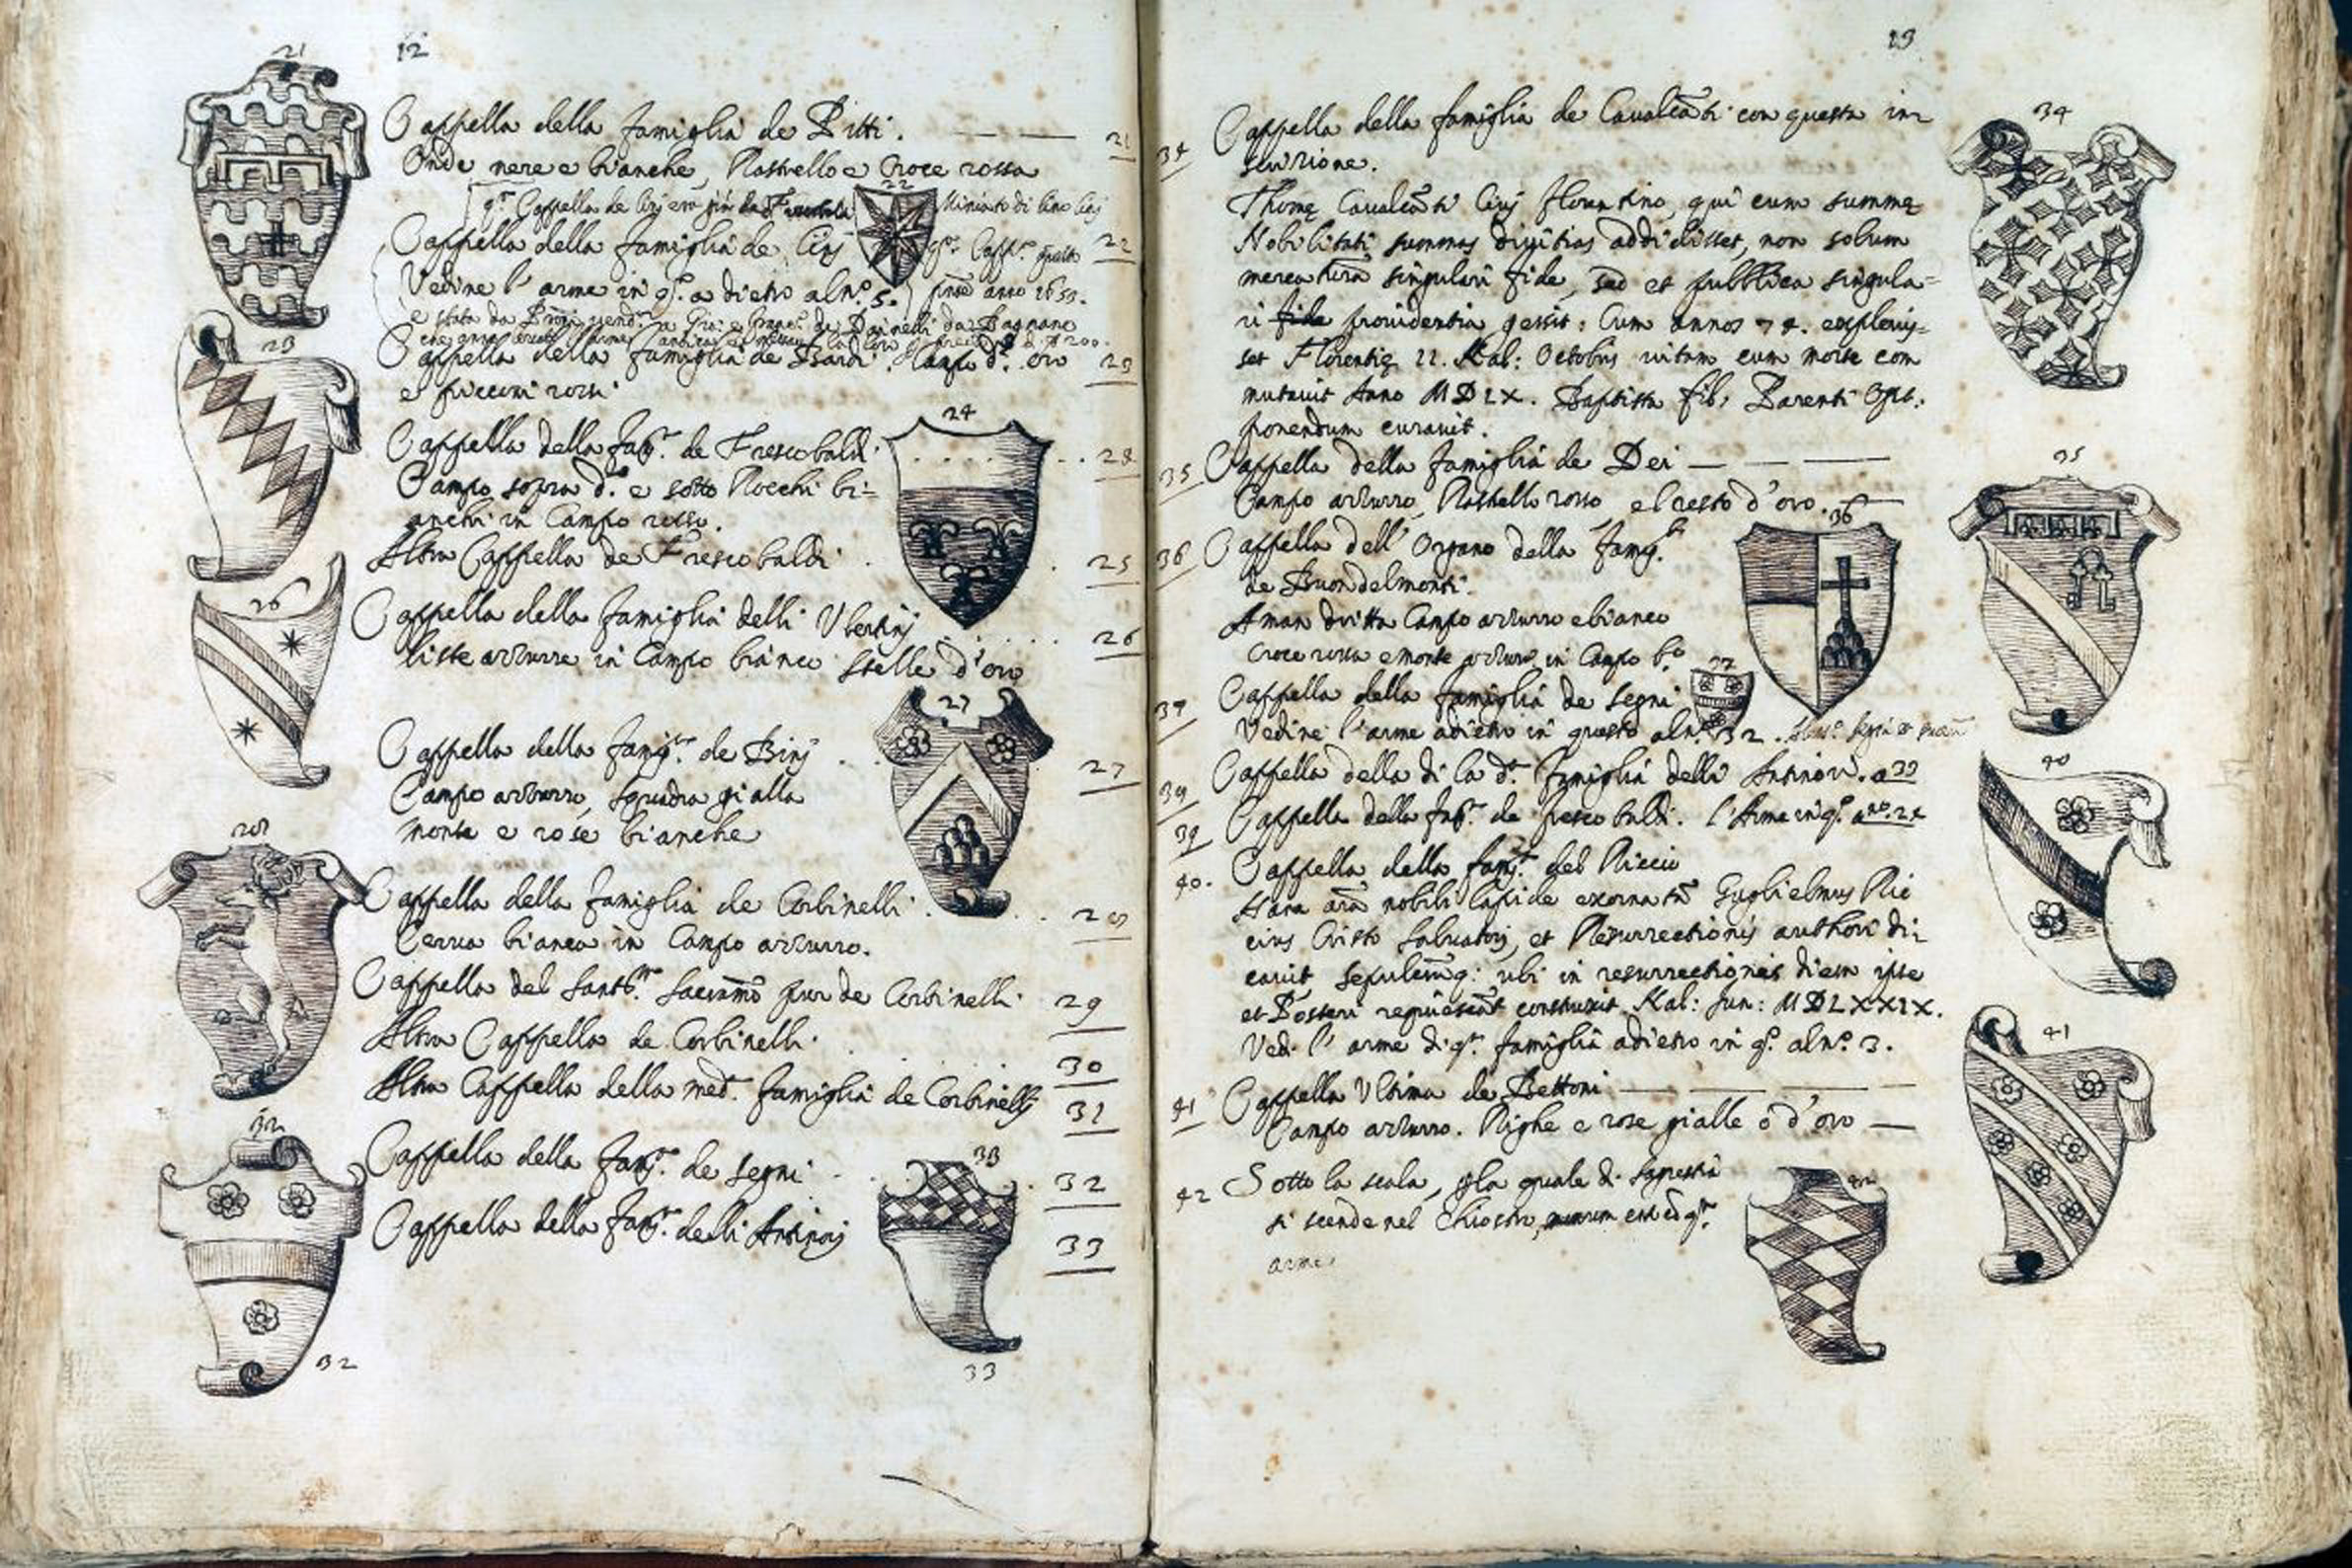 12
21
Cappella della famiglia de Pitti. 21
Onde nere e bianche, Rastrello e Croce rossa
22
Cappella della famiglia de Cinj 22
Vedine l'arme in q.º a dietro al nº. 5.
23
Cappella della famiglia de Bardi. Campo d'. oro 23
e picconi rossi
24
Cappella della fag.ª de Frescobaldi. 24
Campo sopra d'º e sotto Rocchi bi=
anchi in Campo rosso.
Altra Cappella de Frescobaldi 25
26
Cappella della famiglia delli Ubertinj 26
liste azzurre in Campo bianco stelle d'oro
27
Cappella della famig.ª de Binj 27
Campo azzurro, squadra gialla
monte e rose bianche
28
Cappella della famiglia de Corbinelli. 28
Cerva bianca in Campo azzurro.
Cappella del Sant.mo Sacramº pur de Corbinelli 29
Altra Cappella de Corbinelli. 30
Altra Cappella della med.ª famiglia de Corbinellj 31
32
Cappella della fam.ª de Segni 32
33
Cappella della fam.ª delli Antinorj 33
32
33
13
34
34 Cappella della famiglia de Cavalcāti con questa in=
scrizione.
Thomę Cavalcāti Civj florentino, qui cum summę
Nobilitati summas divitias addidisset, non solum
mercaturā singulari fide, sed et pubblica singula=
ri fide providentia gessit: Cum annos 74. explevis=
set Florentię 11. Kal: Octobris vitam cum morte com
mutavit Anno MDLX. Baptista fil: Parenti Opt:
ponendum curavit.
35
35 Cappella della famiglia de Dei
Campo azzurro, Rastello rosso e l resto d'oro.
36
36 Cappella dell' Organo della famig.ª
de Buondelmonti.
A man dritta Campo azzurro e bianco
Croce rossa e monte azzurro in Campo b.º
37
37 Cappella della famiglia de Segni
Vedine l'arme adietro in questo al nº. 32.
39 Cappella della di la d.ª famiglia delli Antinori. a 33
39 Cappella della fag.ª de frescobaldi. l'Arme in q.º a nº. 24
40
40. Cappella della fam.ª del Riccio
Hanc arā nobili lapide exornatā Guglielmus Ric
cius Cristo Salvatorj, et Resurrectionis authori di=
cavit sepulcrumq: ubi in resurrectionis diem ipse
et Posteri requiescāt construxit Kal: Jun: MDLXXIX.
Vedi l'arme di q.ª famiglia adietro in q.º al nº. 3.
41
41 Cappella Ultima de Bettoni
Campo azzurro. Righe e rose gialle o d'oro
42
42 Sotto la scala, p la quale di Sagrestia
si scende nel Chiostro, q.ª
arme.